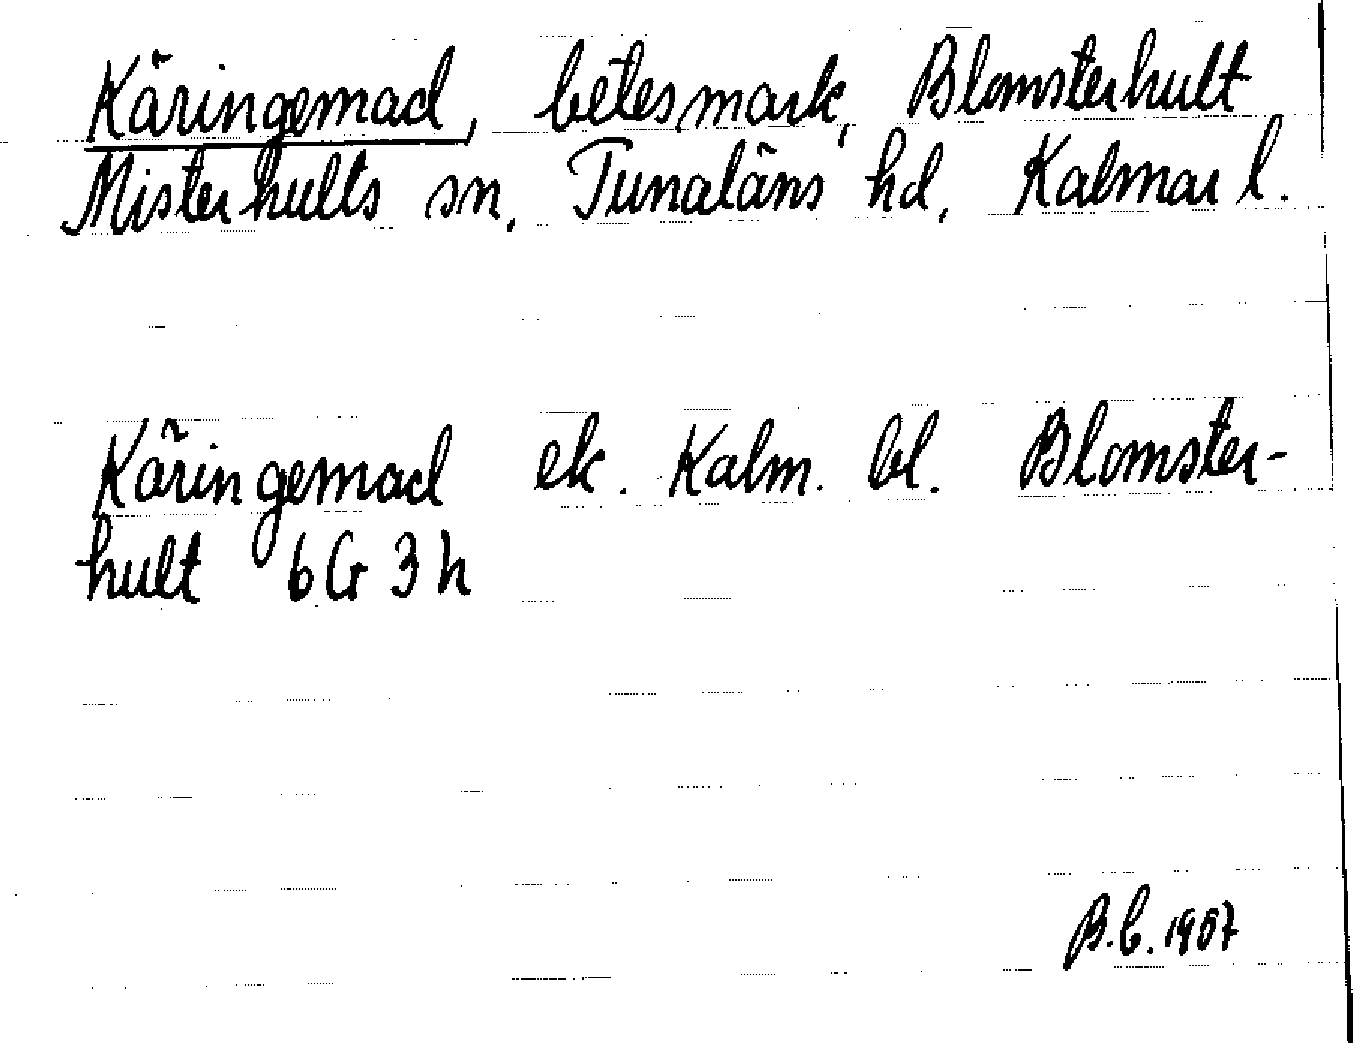 Käringemad, betesmark, Blomsterhult
Misterhults sn, Tunaläns hd, Kalmar l.
Käringemad ek. Kalm. bl. Blomster-
hult 6G 3h
B.C. 1967